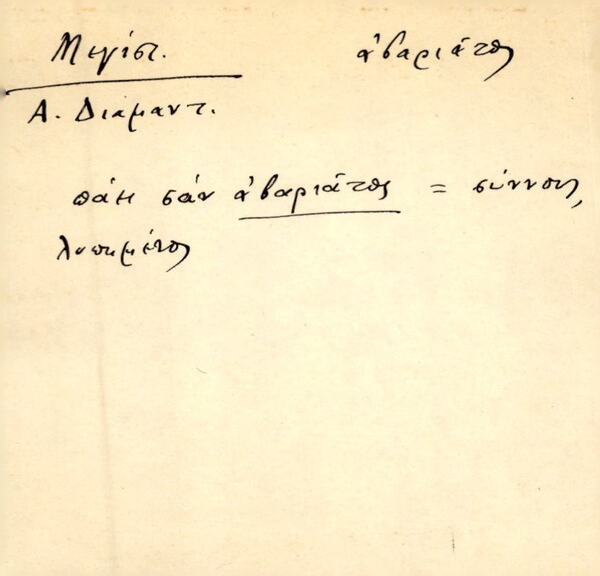 Μεγίστ. ἀβαριᾶτος
Α. Διαμαντ.
πάει σάν ἀβαριᾶτος = σύννους,
λυπημένος